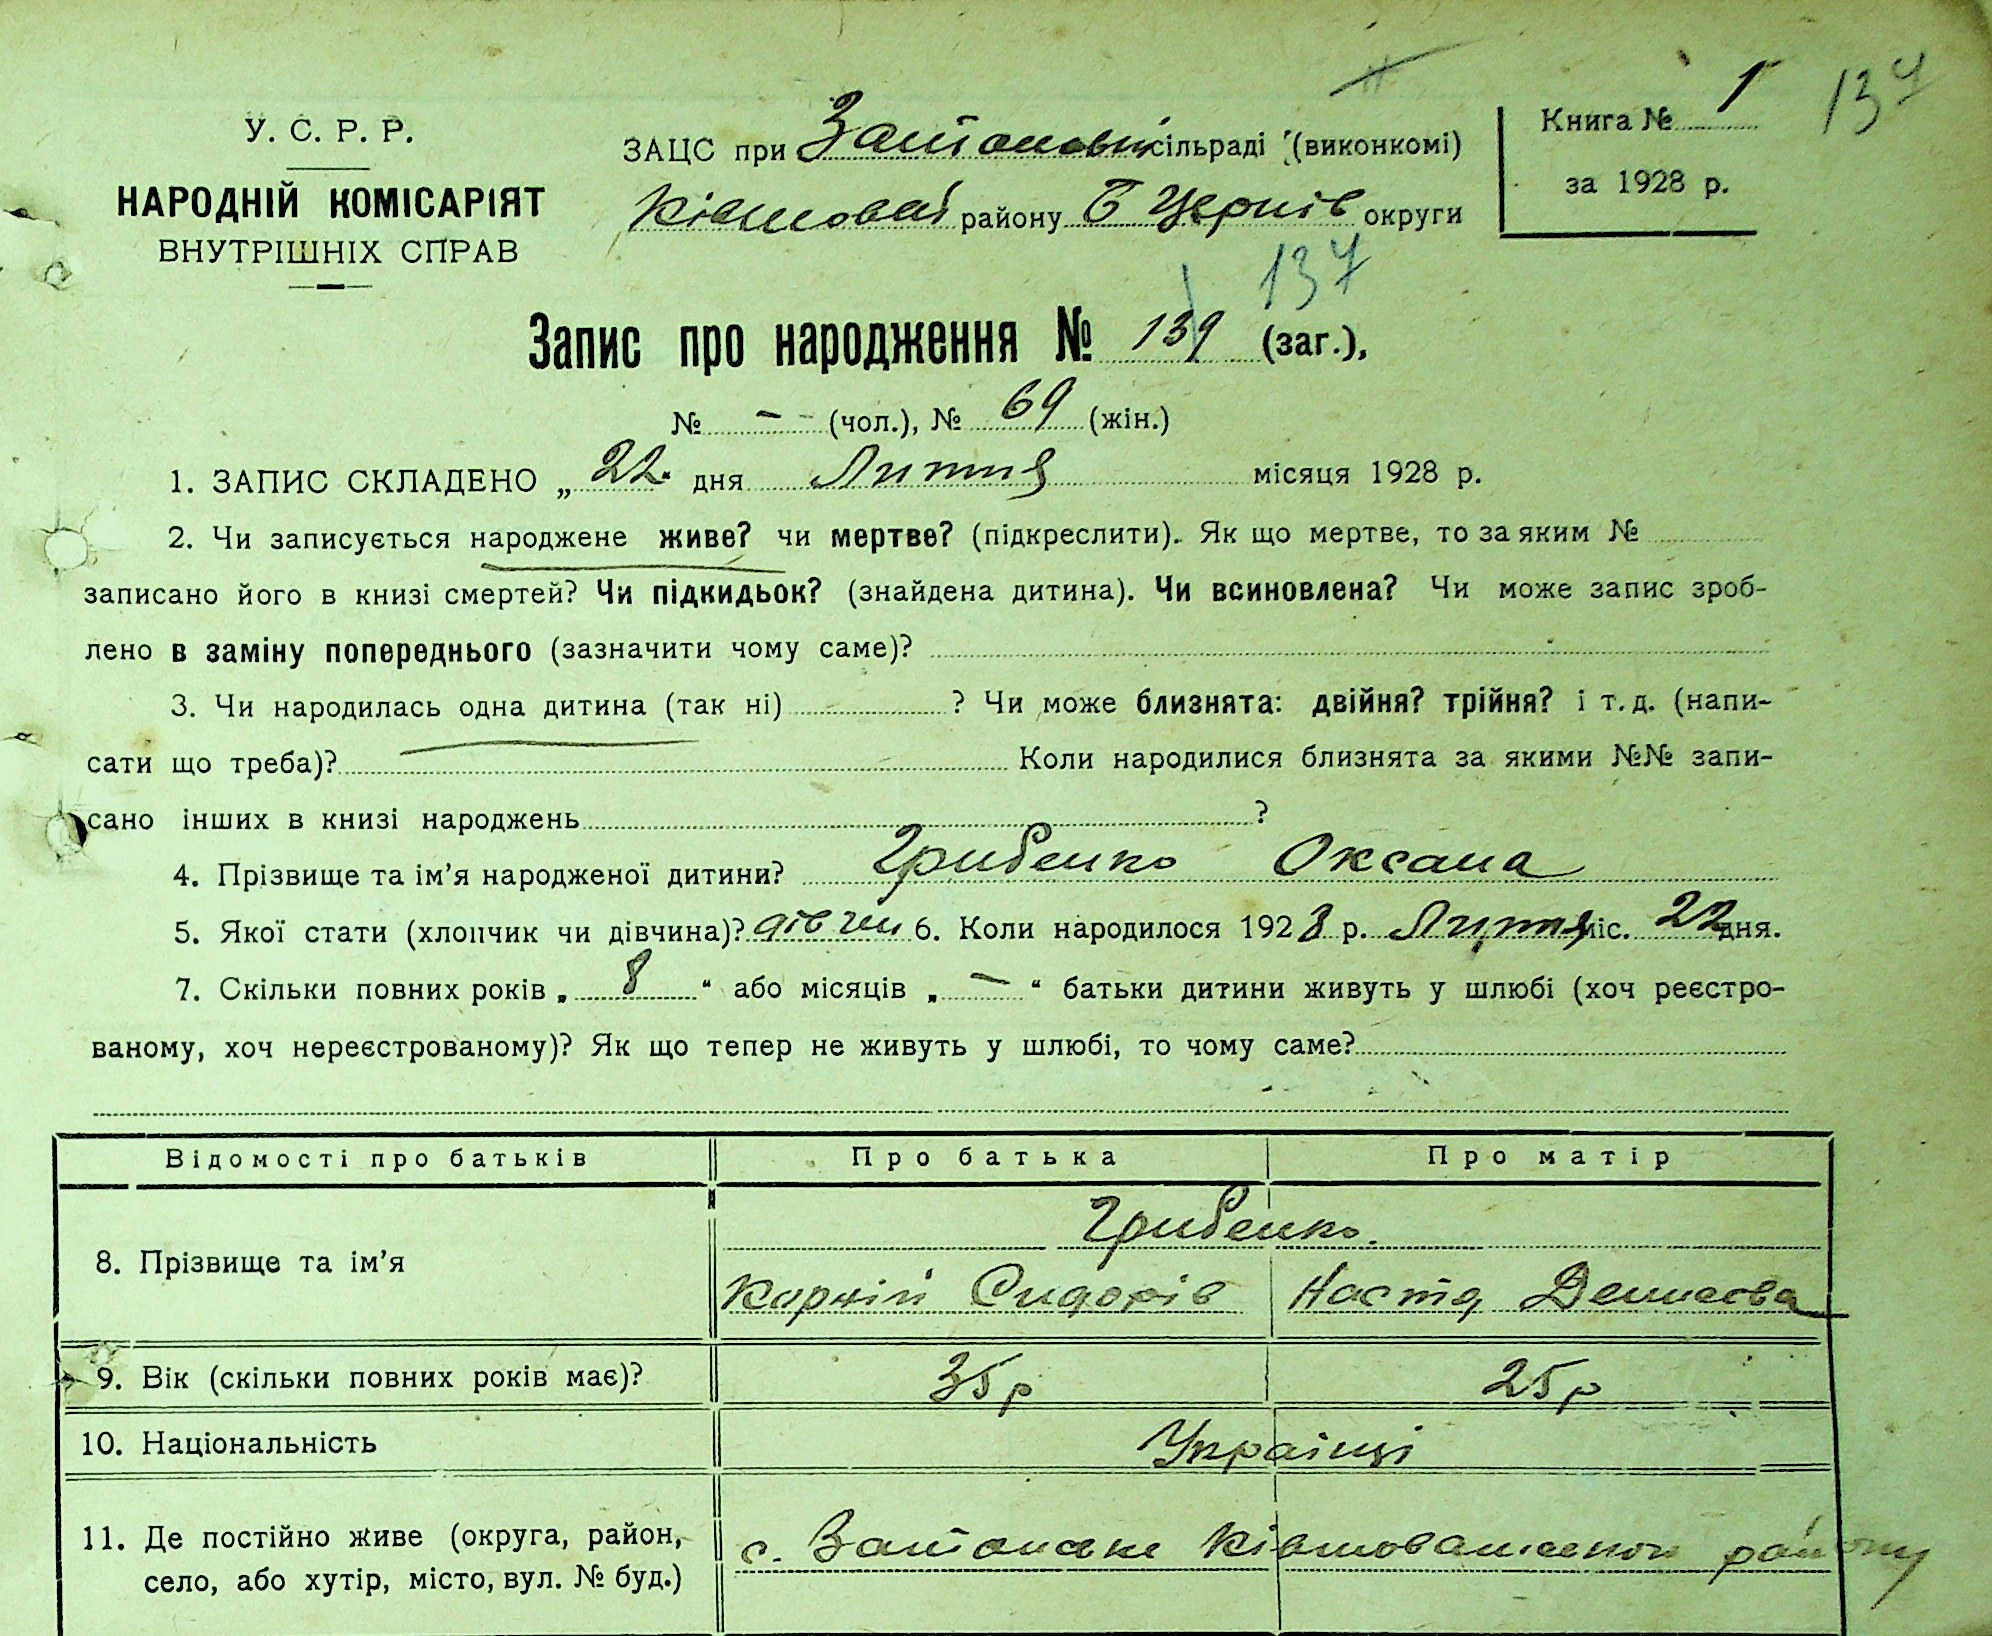 137
У. С. Р. Р.
НАРОДНІЙ КОМІСАРІЯТ
ВНУТРІШНІХ СПРАВ
ЗАЦС при сільраді (виконкомі)
Ківшоват району Б Церків округи
Книга № 1
за 1928 р.
137
Запис про народження № 139 (заг.),
№ – (чол.), № 69 (жін.)
1. ЗАПИС СКЛАДЕНО „22" дня Лютня місяця 1928 р.
2. Чи записується народжене живе? чи мертве? (підкреслити). Як що мертве, то за яким №
записано його в книзі смертей? Чи підкидьок? (знайдена дитина). Чи всиновлена? Чи може запис зроб-
лено в заміну попереднього (зазначити чому саме)?
3. Чи народилась одна дитина (так ні) ? Чи може близнята: двійня? трійня? і т. д. (напи-
сати що треба)? Коли народилися близнята за якими №№ запи-
сано інших в книзі народжень ?
4. Прізвище та ім'я народженої дитини? Грибенко Оксана
5. Якої стати (хлопчик чи дівчина)? дівчин 6. Коли народилося 1928 р. Лютня міс. 22 дня.
7. Скільки повних років „ 8 " або місяців „ – " батьки дитини живуть у шлюбі (хоч реєстро-
ваному, хоч нереєстрованому)? Як що тепер не живуть у шлюбі, то чому саме?
Відомості про батьків Про батька Про матір
8. Прізвище та ім'я Грибенко.
Корній Сидорів Настя Денисова
9. Вік (скільки повних років має)? 35 р 25 р
10. Національність Українці
11. Де постійно живе (округа, район,
село, або хутір, місто, вул. № буд.)
с. Ківшоватського району